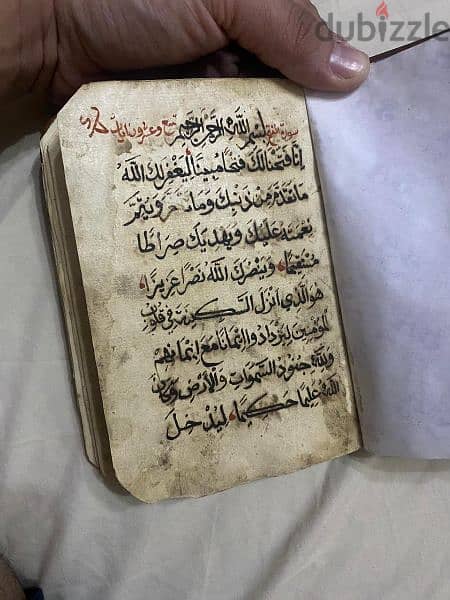 dubizzle
سورة الفتح بسم الله الرحمن الرحيم تسع وعشرون ايات
انا فتحنالك فتحا مبينا ليغفر لك الله
ما تقدم من ذنبك وما تاخر ويتم
نعمته عليك ويهديك صراطا
مستقيما وينصرك الله نصرا عزيزا
هو الذي انزل السكينة في قلوب
المؤمنين ليزدادوا ايمانا مع ايمانهم
ولله جنود السموات والارض وكان
الله عليما حكيما ليدخل